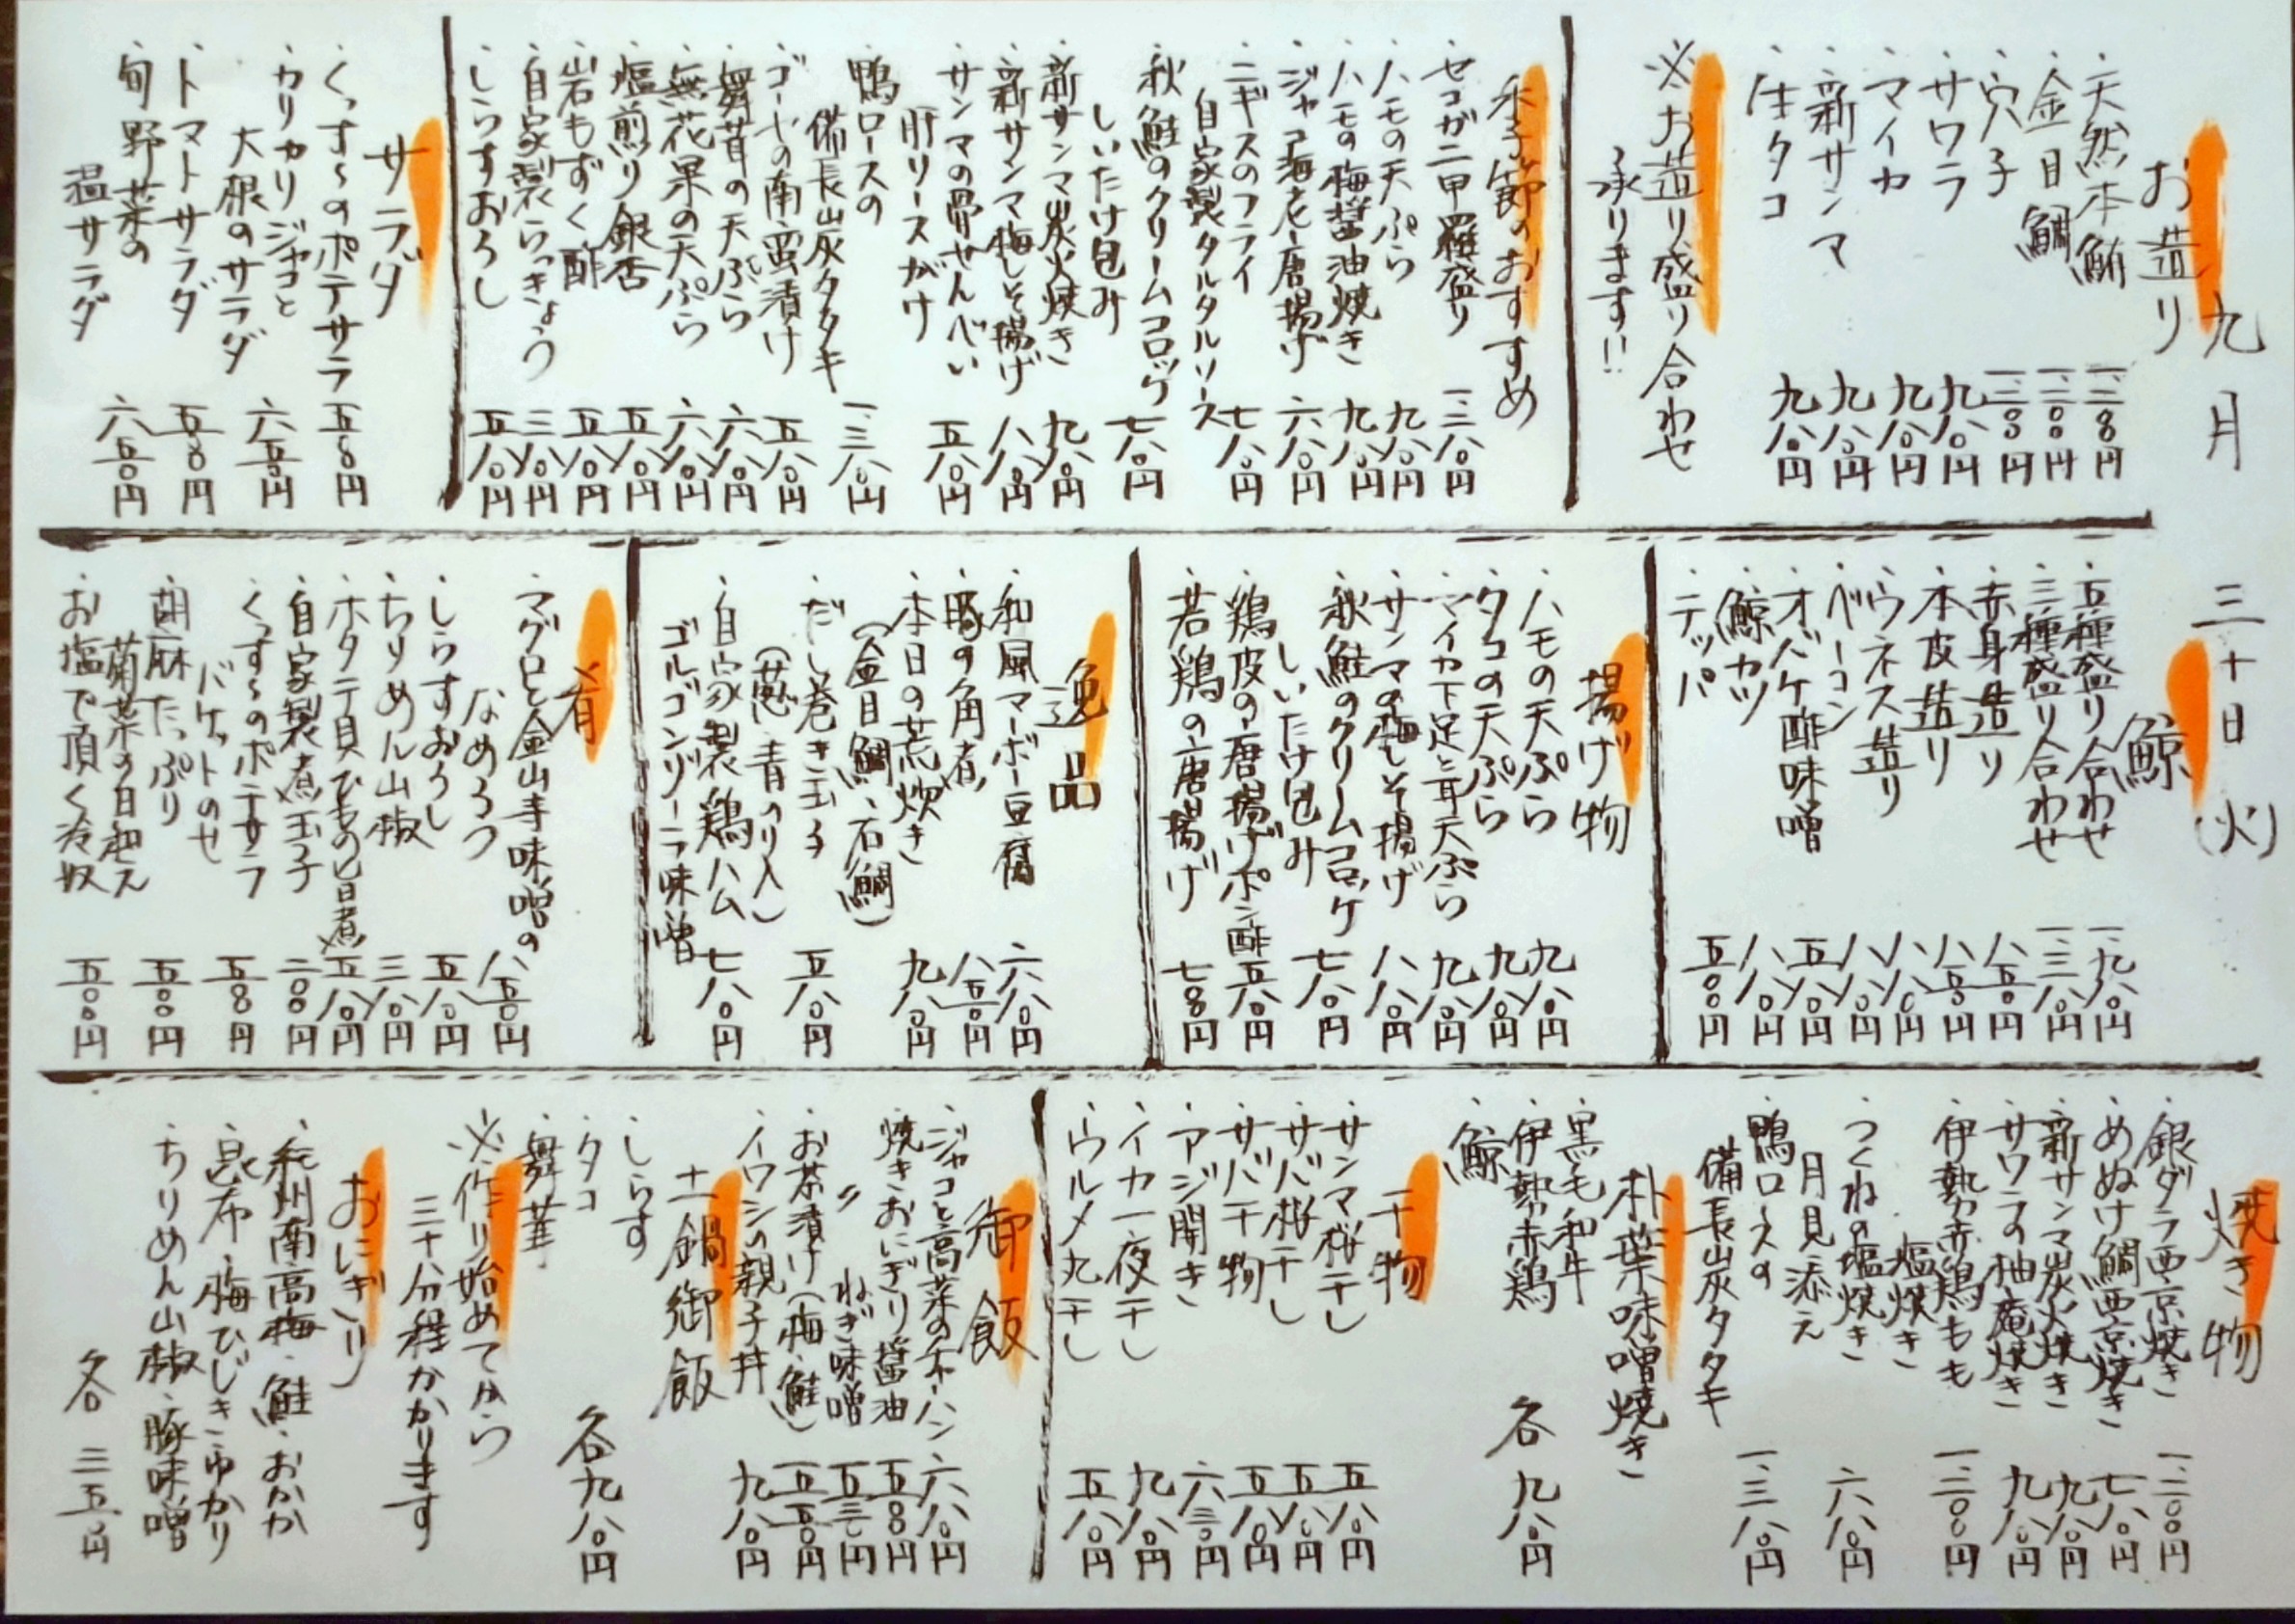 九月 三十日(火)
お造り
・天然本鮪 一、二八〇円
・金目鯛
・穴子
・サワラ 九八〇円
・マイカ 九八〇円
・新サンマ 九八〇円
・生タコ 九八〇円
※お造り盛り合わせ
承ります!!
季節のおすすめ
・セコガニ甲羅盛り 一、三八〇円
・ハモの天ぷら 九八〇円
・ハモの梅醤油焼き 九八〇円
・ジャコ海老唐揚げ 六八〇円
・ニギスのフライ
自家製タルタルソース 七八〇円
・秋鮭のクリームコロッケ
しいたけ包み 七八〇円
・新サンマ炭火焼き 九八〇円
・新サンマ梅しそ揚げ 八八〇円
・サンマの骨せんべい
肝ソースがけ 五八〇円
・鴨ロースの
備長炭タタキ 一、三八〇円
・ゴーヤの南蛮漬け 五八〇円
・舞茸の天ぷら 六八〇円
・無花果の天ぷら 六八〇円
・塩煎り銀杏 五八〇円
・岩もずく酢 五八〇円
・自家製らっきょう 三八〇円
・しらすおろし 五八〇円
サラダ
・くっす〜のポテサラ 五八〇円
・カリカリジャコと
大根のサラダ 六五〇円
・トマトサラダ 五八〇円
・旬野菜の
温サラダ 六五〇円
鯨
・五種盛り合わせ 一、九八〇円
・三種盛り合わせ 一、三八〇円
・赤身造り 八五〇円
・本皮造り 八五〇円
・ウネス造り 八八〇円
・ベーコン 八八〇円
・オバケ酢味噌 五八〇円
・鯨カツ 八八〇円
・テッパ 五〇〇円
揚げ物
・ハモの天ぷら 九八〇円
・タコの天ぷら 九八〇円
・マイカ下足と耳天ぷら 九八〇円
・サンマの梅しそ揚げ 八八〇円
・秋鮭のクリームコロッケ
しいたけ包み 七八〇円
・鶏皮の唐揚げポン酢 五八〇円
・若鶏の唐揚げ 七八〇円
逸品
・和風マーボー豆腐 六八〇円
・豚の角煮 八五〇円
・本日の荒炊き
(金目鯛、石鯛) 九八〇円
・だし巻き玉子
(葱・青のり入) 五八〇円
・自家製鶏ハム
ゴルゴンゾーラ味噌 七八〇円
肴
・マグロと金山寺味噌の
なめろう 八五〇円
・しらすおろし 五八〇円
・ちりめん山椒 三八〇円
・ホタテ貝ひもの旨煮 五八〇円
・自家製煮玉子 二〇〇円
・くっす〜のポテサラ
バケットのせ 五八〇円
・胡麻たっぷり
菊菜の白和え 五五〇円
・お塩で頂く冷奴 五〇〇円
焼き物
・銀ダラ西京焼き 一、二〇〇円
・めぬけ鯛西京焼き 七八〇円
・新サンマ炭火焼き 九八〇円
・サワラの柚庵焼き 九八〇円
・伊勢赤鶏もも
塩焼き 一、二〇〇円
・つくねの塩焼き
月見添え 六八〇円
・鴨ロースの
備長炭タタキ 一、三八〇円
朴葉味噌焼き
・黒毛和牛
・伊勢赤鶏
・鯨 各 九八〇円
干物
・サンマ桜干し 五八〇円
・サバ桜干し 五八〇円
・サバ干物 五八〇円
・アジ開き 六三〇円
・イカ一夜干し 九八〇円
・ウルメ丸干し 五八〇円
御飯
・ジャコと高菜のチャーハン 六八〇円
・焼きおにぎり醤油 五〇〇円
〃 ねぎ味噌 五三〇円
・お茶漬け(梅、鮭) 五五〇円
・イワシの親子丼 九八〇円
土鍋御飯
・しらす
・タコ
・舞茸 各九八〇円
※作り始めてから
三十分程かかります
おにぎり
・紀州南高梅・鮭・おかか
・昆布・梅ひじき・ゆかり
・ちりめん山椒・豚味噌
各 三五〇円